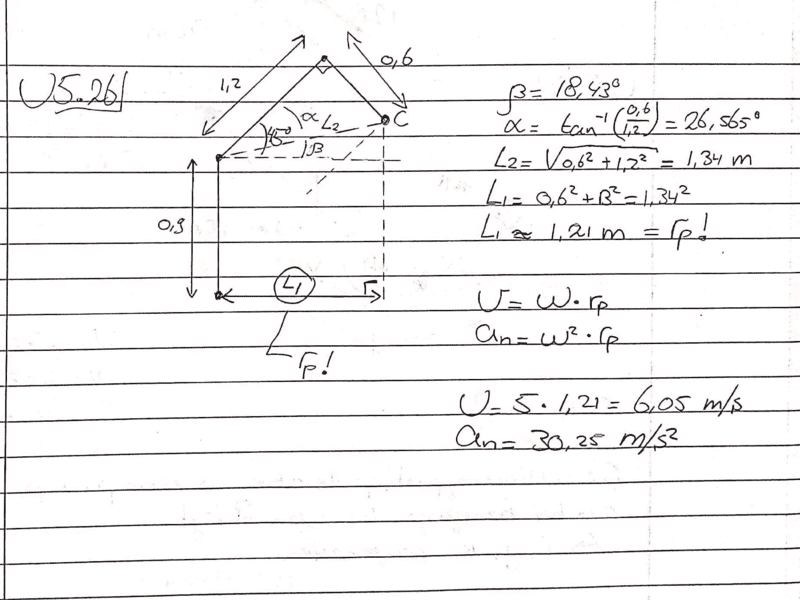 U5.26
1,2
0,6
α
L₂
C
45°
β
0,9
L₁
r
rp!
β = 18,43°
α = tan⁻¹(0,6/1,2) = 26,565°
L₂ = √0,6² + 1,2² = 1,34 m
L₁ = 0,6² + B² = 1,34²
L₁ ≈ 1,21 m = rp!
U = ω · rp
an = ω² · rp
U = 5 · 1,21 = 6,05 m/s
an = 30,25 m/s²